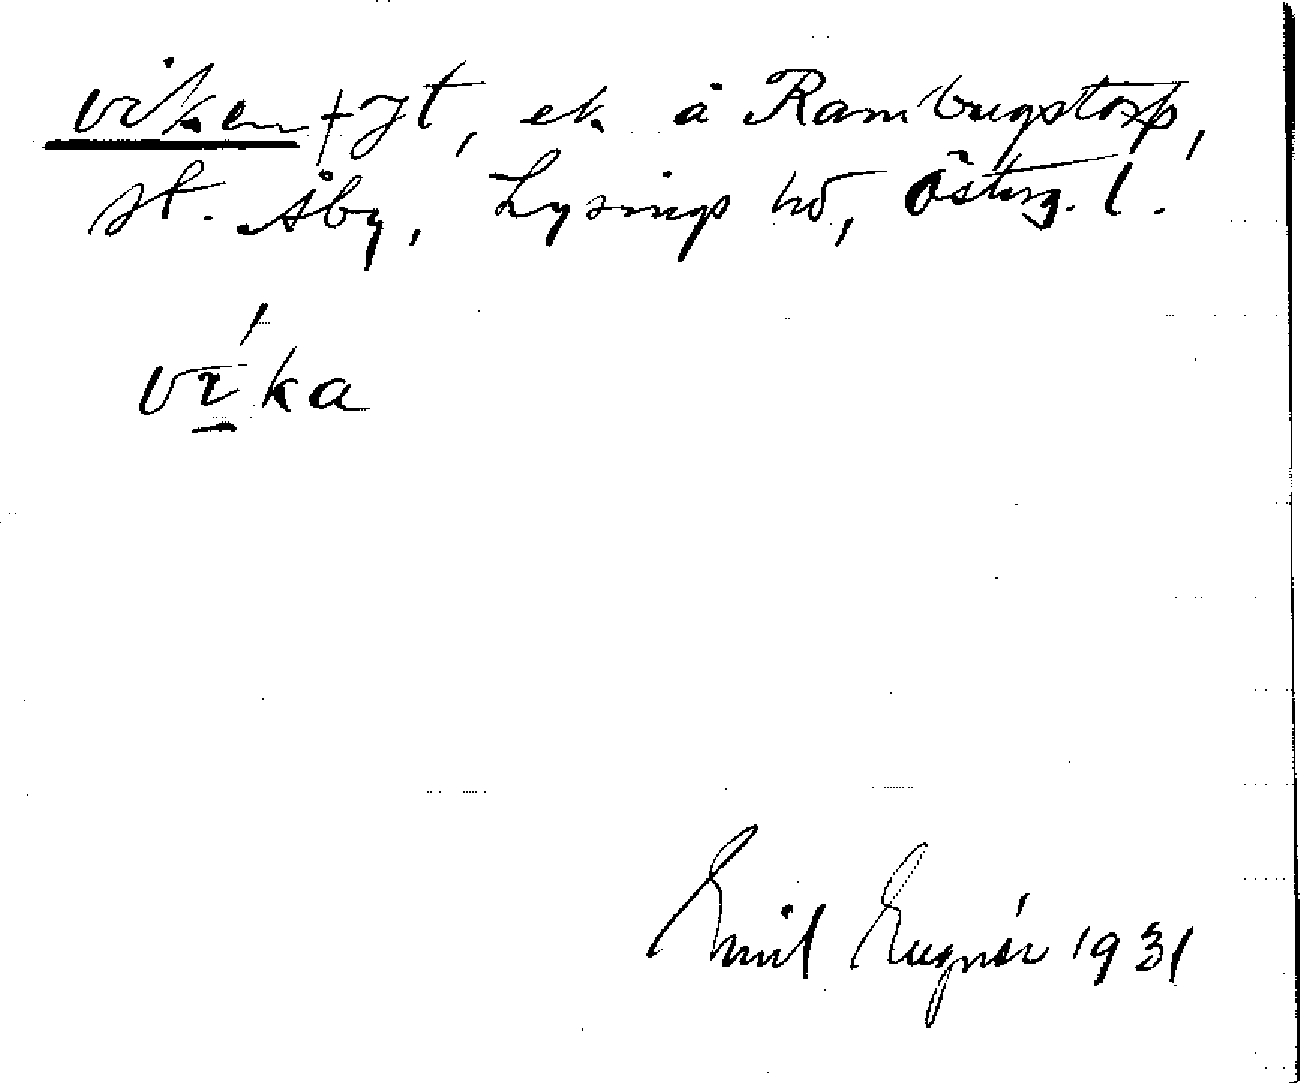 viken † Jt, ek å Rambugstorp,
st. Åby, Lysings hd, Österg. l.
ví̱ka
Emil Eugnér 1931